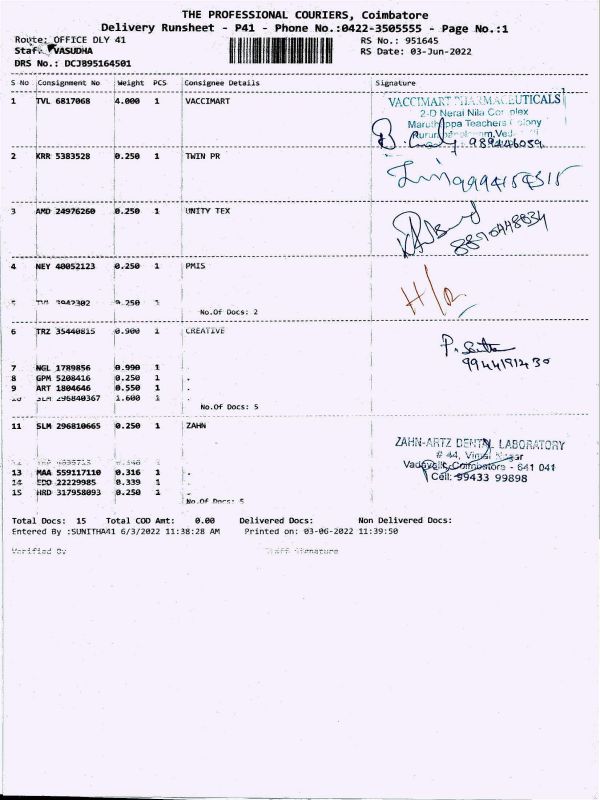 THE PROFESSIONAL COURIERS, Coimbatore
Delivery Runsheet - P41 - Phone No.:0422-3505555 - Page No.:1
Route: OFFICE DLY 41 RS No.: 951645
Staff VASUDHA RS Date: 03-Jun-2022
DRS No.: DCJ895164501
S No Consignment No Weight PCS Consignee Details Signature
1 TVL 6817068 4.000 1 VACCIMART
VACCIMART PHARMACEUTICALS
2-D Nerai Nila Complex
Maruthappa Teachers Colony
9894446059
2 KRR 5383528 0.250 1 TWIN PR
3 AMD 24976260 0.250 1 UNITY TEX
4 NEY 40052123 0.250 1 PMIS
H/R
5 TVL 3942302 0.250 1
No.Of Docs: 2
6 TRZ 35440815 0.900 1 CREATIVE
7 NGL 1789856 0.990 1 .
8 GPM 5208416 0.250 1 .
9 ART 1804646 0.550 1 .
10 SLM 296840367 1.600 1
No.Of Docs: 5
11 SLM 296810665 0.250 1 ZAHN
ZAHN-ARTZ DENTAL LABORATORY
# 44, Vimal Nagar
Vadavalli, Coimbatore - 641 041
Cell: 99433 99898
13 MAA 559117110 0.316 1 .
14 EDD 22229985 0.339 1 .
15 HRD 317958093 0.250 1 .
No.Of Docs: 5
Total Docs: 15 Total COD Amt: 0.00 Delivered Docs: Non Delivered Docs:
Entered By :SUNITHA41 6/3/2022 11:38:28 AM Printed on: 03-06-2022 11:39:50
Verified By Staff Signature